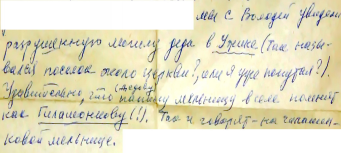 мы с Володей увидели
разрушенную могилу деда в Унике (так назы-
вался поселок около церкви?, или я уже попутал?).
Удивительно, что (дедову) мельницу в селе помнят
как Филамонкову (!). Так и говорят – на
ковой мельнице.